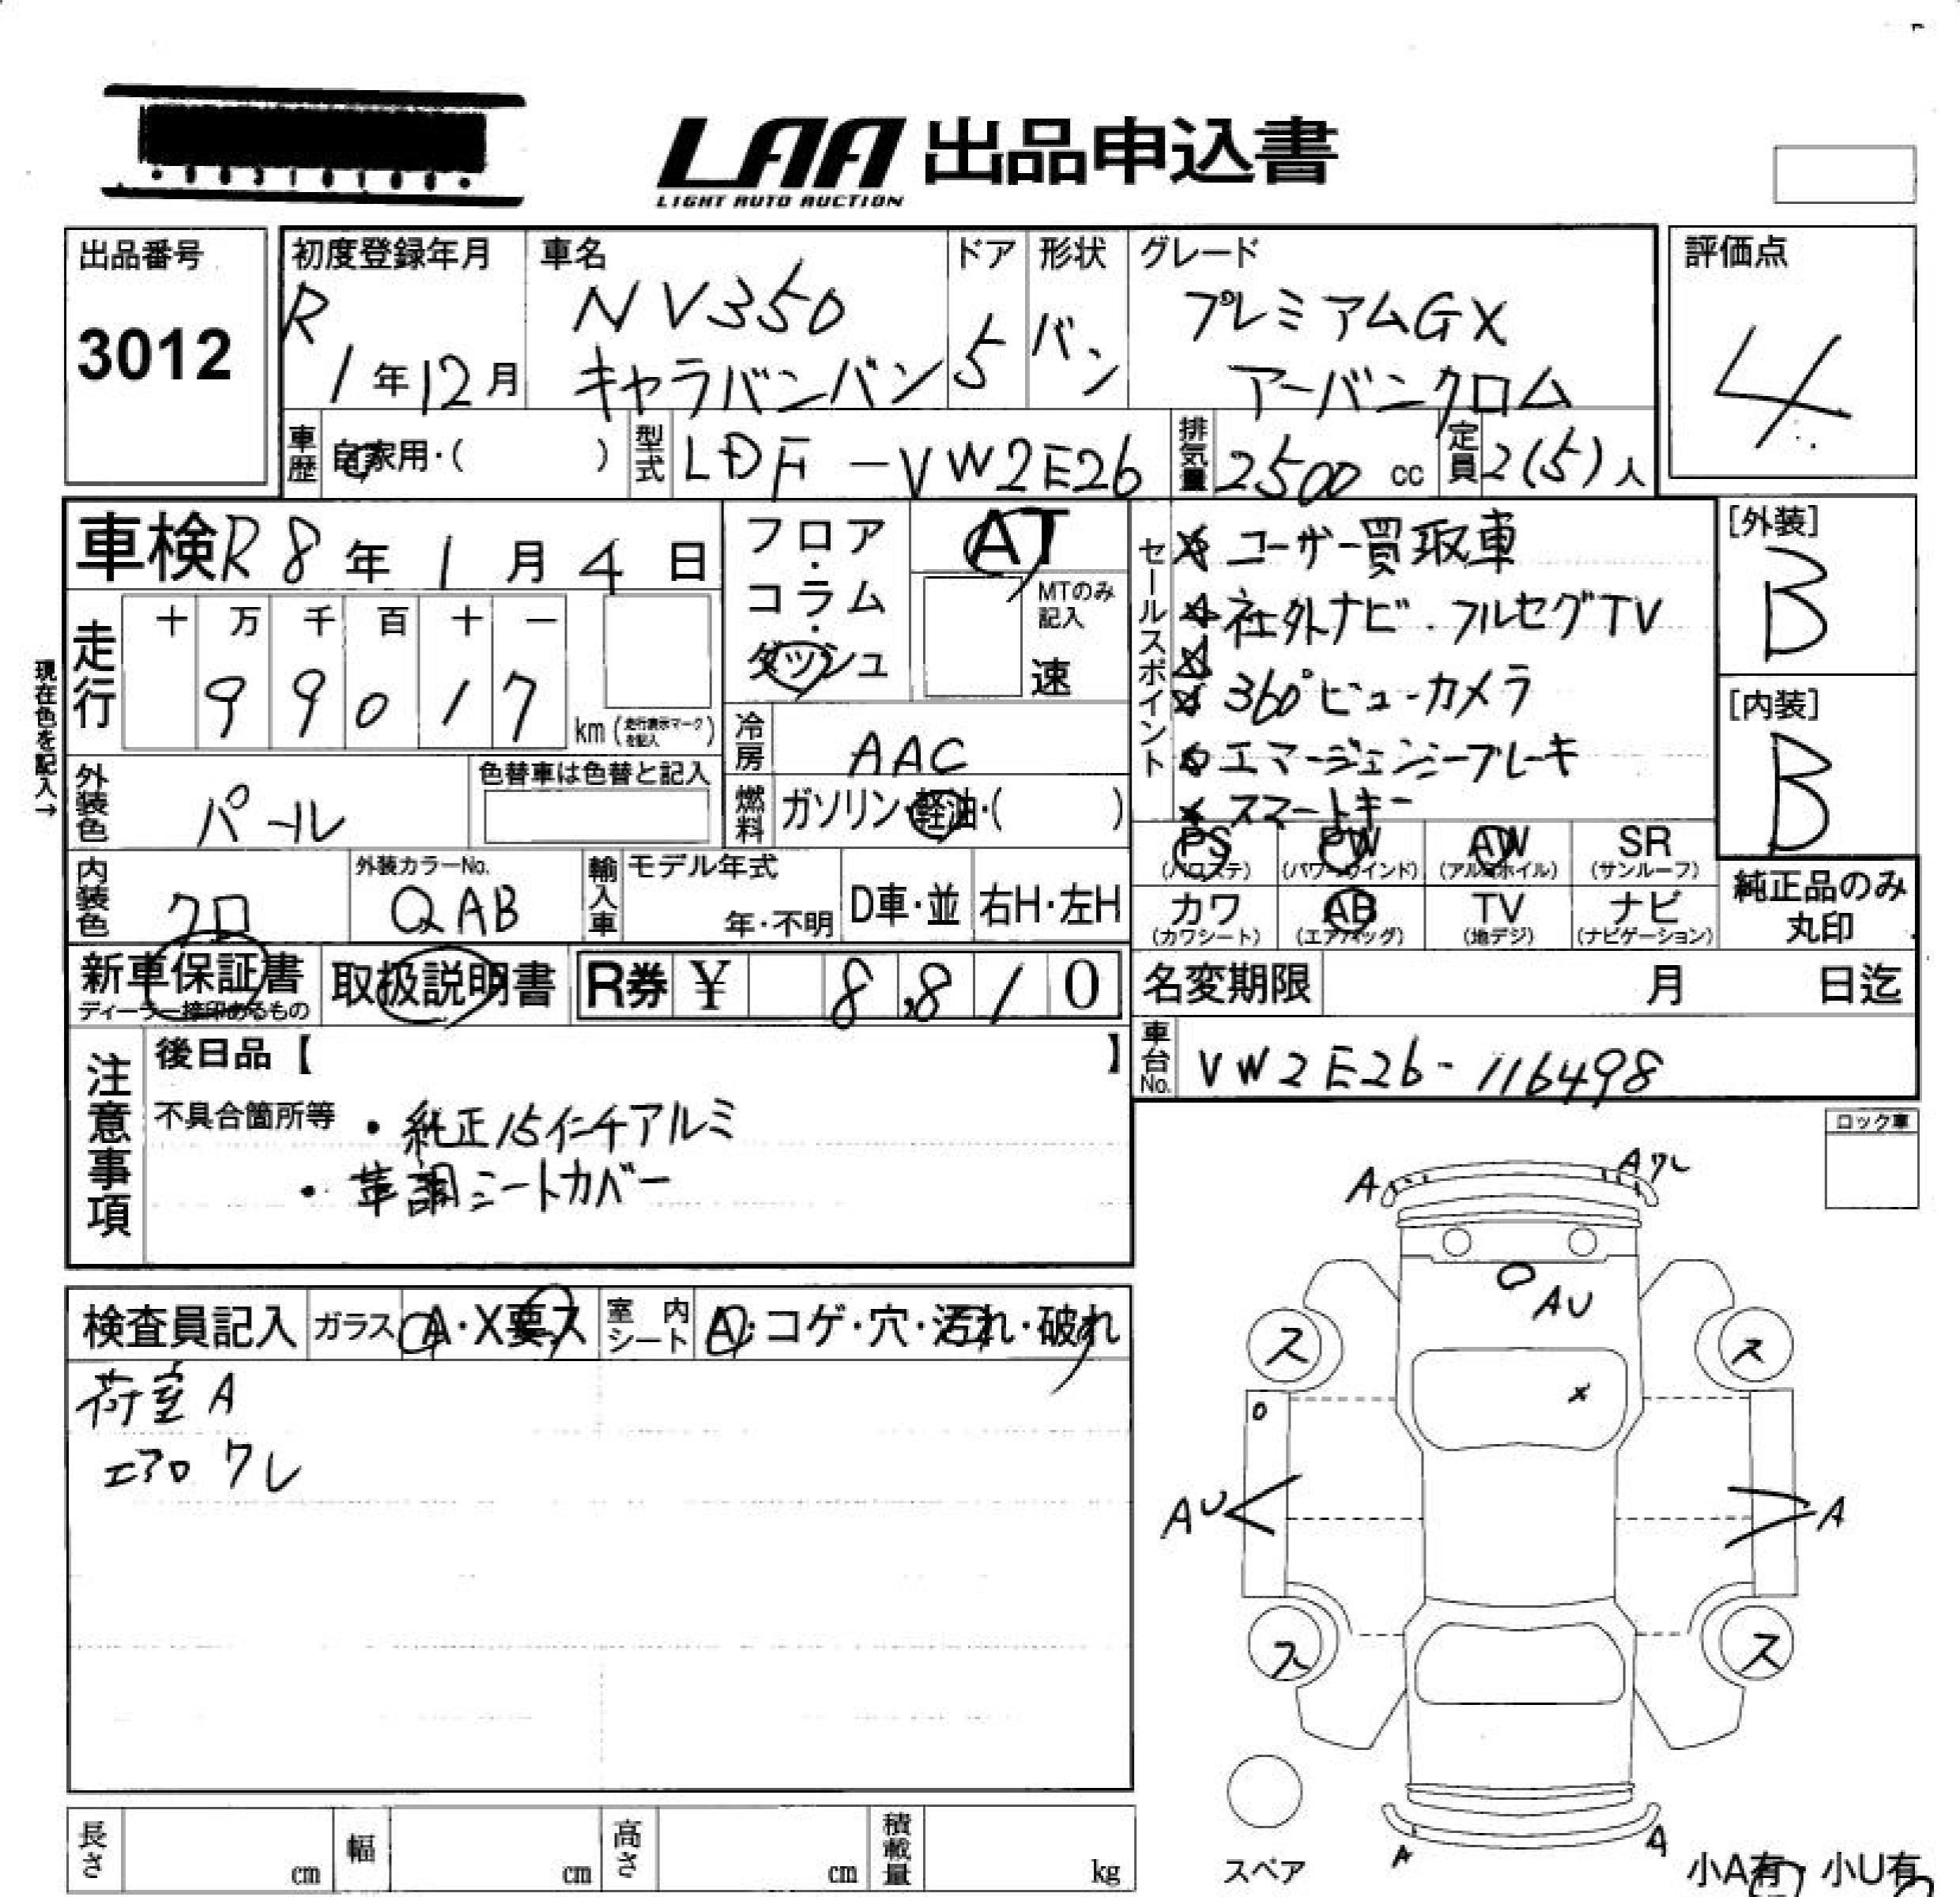 LAA 出品申込書
LIGHT AUTO AUCTION
出品番号
3012
初度登録年月
R 1年12月
車名
NV350
キャラバンバン
ドア
5
形状
バン
グレード
プレミアムGX
アーバンクロム
評価点
4
車歴 自家用・( )
型式 LDF-VW2E26
排気量 2500 cc
定員 2(5)人
車検 R8年1月4日
フロア・コラム・ダッシュ
AT
MTのみ記入
速
現在色を記入→
走行
十 万 千 百 十 一
99017
km(走行表示マークを記入)
冷房 AAC
燃料 ガソリン・軽油・( )
外装色 パール
色替車は色替と記入
内装色 クロ
外装カラーNo.
QAB
輸入車
モデル年式
年・不明
D車・並
右H・左H
セールスポイント
ユーザー買取車
社外ナビ・フルセグTV
360°ビューカメラ
エマージェンシーブレーキ
スマートキー
[外装]
B
[内装]
B
PS (パワステ)
PW (パワーウインド)
AW (アルミホイル)
SR (サンルーフ)
カワ (カワシート)
AB (エアバッグ)
TV (地デジ)
ナビ (ナビゲーション)
純正品のみ
丸印
新車保証書
ディーラー捺印あるもの
取扱説明書
R券 ¥ 8,810
名変期限 月 日迄
車台No. VW2E26-116498
注意事項
後日品【 】
不具合箇所等
・純正15インチアルミ
・革調シートカバー
ロック車
検査員記入
ガラス A・X要ス
室内シート A・コゲ・穴・汚れ・破れ
荷室A
エアロワレ
A
Aワレ
AU
ス
ス
x
AU
A
ス
ス
スペア
A
A
小A有・小U有
長さ cm
幅 cm
高さ cm
積載量 kg